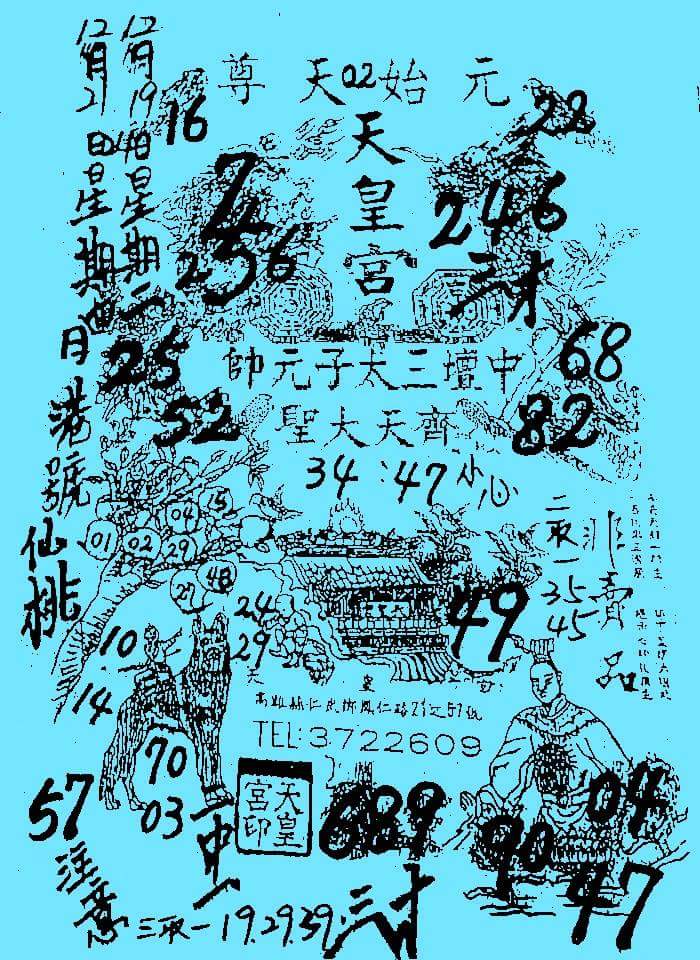 12月19日星期二
12月21日星期四
港號
仙桃
元始天尊
02
天皇宮
16
22
7
256
246
三才
25
52
中壇三太子元帥
齊天大聖
68
82
34:47小心
01
02
04
15
29
27
48
二取一
35
45
非賣品
24
29
49
10
14
70
03
TEL:3722609
57
注意
一中一
天皇宮印
689
三才
三取一19.29.39.
04
90
47